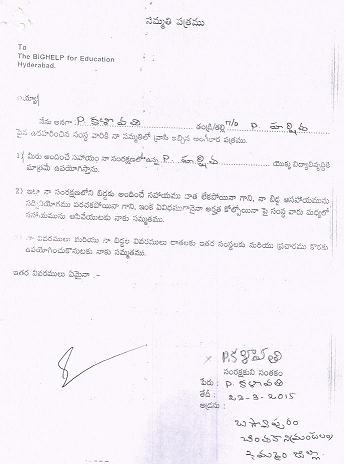 సమ్మతి పత్రము
To
The BIGHELP for Education
Hyderabad.
అయ్యా
నేను అనగా P. కళావతి తండ్రి/తల్లి G/o P. హర్షిత
పైన ఉదహరించిన సంస్థ వారికి నా సమ్మతితో వ్రాసి ఇచ్చిన అంగీకార పత్రము.
1) మీరు అందించే సహాయం నా సంరక్షణలో ఉన్న P. హర్షిత యొక్క విద్యాభివృద్ధికి
మాత్రమే ఉపయోగిస్తాను.
2) ఇలా నా సంరక్షణలోని బిడ్డకు అందించే సహాయము దాత లేకపోయినా గాని, నా బిడ్డ ఆసహాయమును
సద్వినియోగము పరచకపోయినా గాని, ఇంకే విధముగానైనా అర్హత కోల్పోయినా పై సంస్థ వారు మధ్యలో
సహాయమును ఆపివేయుటకు నాకు సమ్మతము.
3) నా వివరములు మరియు నా బిడ్డల వివరములు దాతలకు ఇతర సంస్థలకు మరియు ప్రచారము కొరకు
ఉపయోగించుకొనుటకు నాకు సమ్మతము.
ఇతర వివరములు ఏమైనా :-
x P. కళావతి
సంరక్షకుని సంతకం
పేరు : P. కళావతి
తేది : 22-3-2015
అడ్రసు :
చింతకాని (మండలం)
ఖమ్మం జిల్లా
BIGHELP